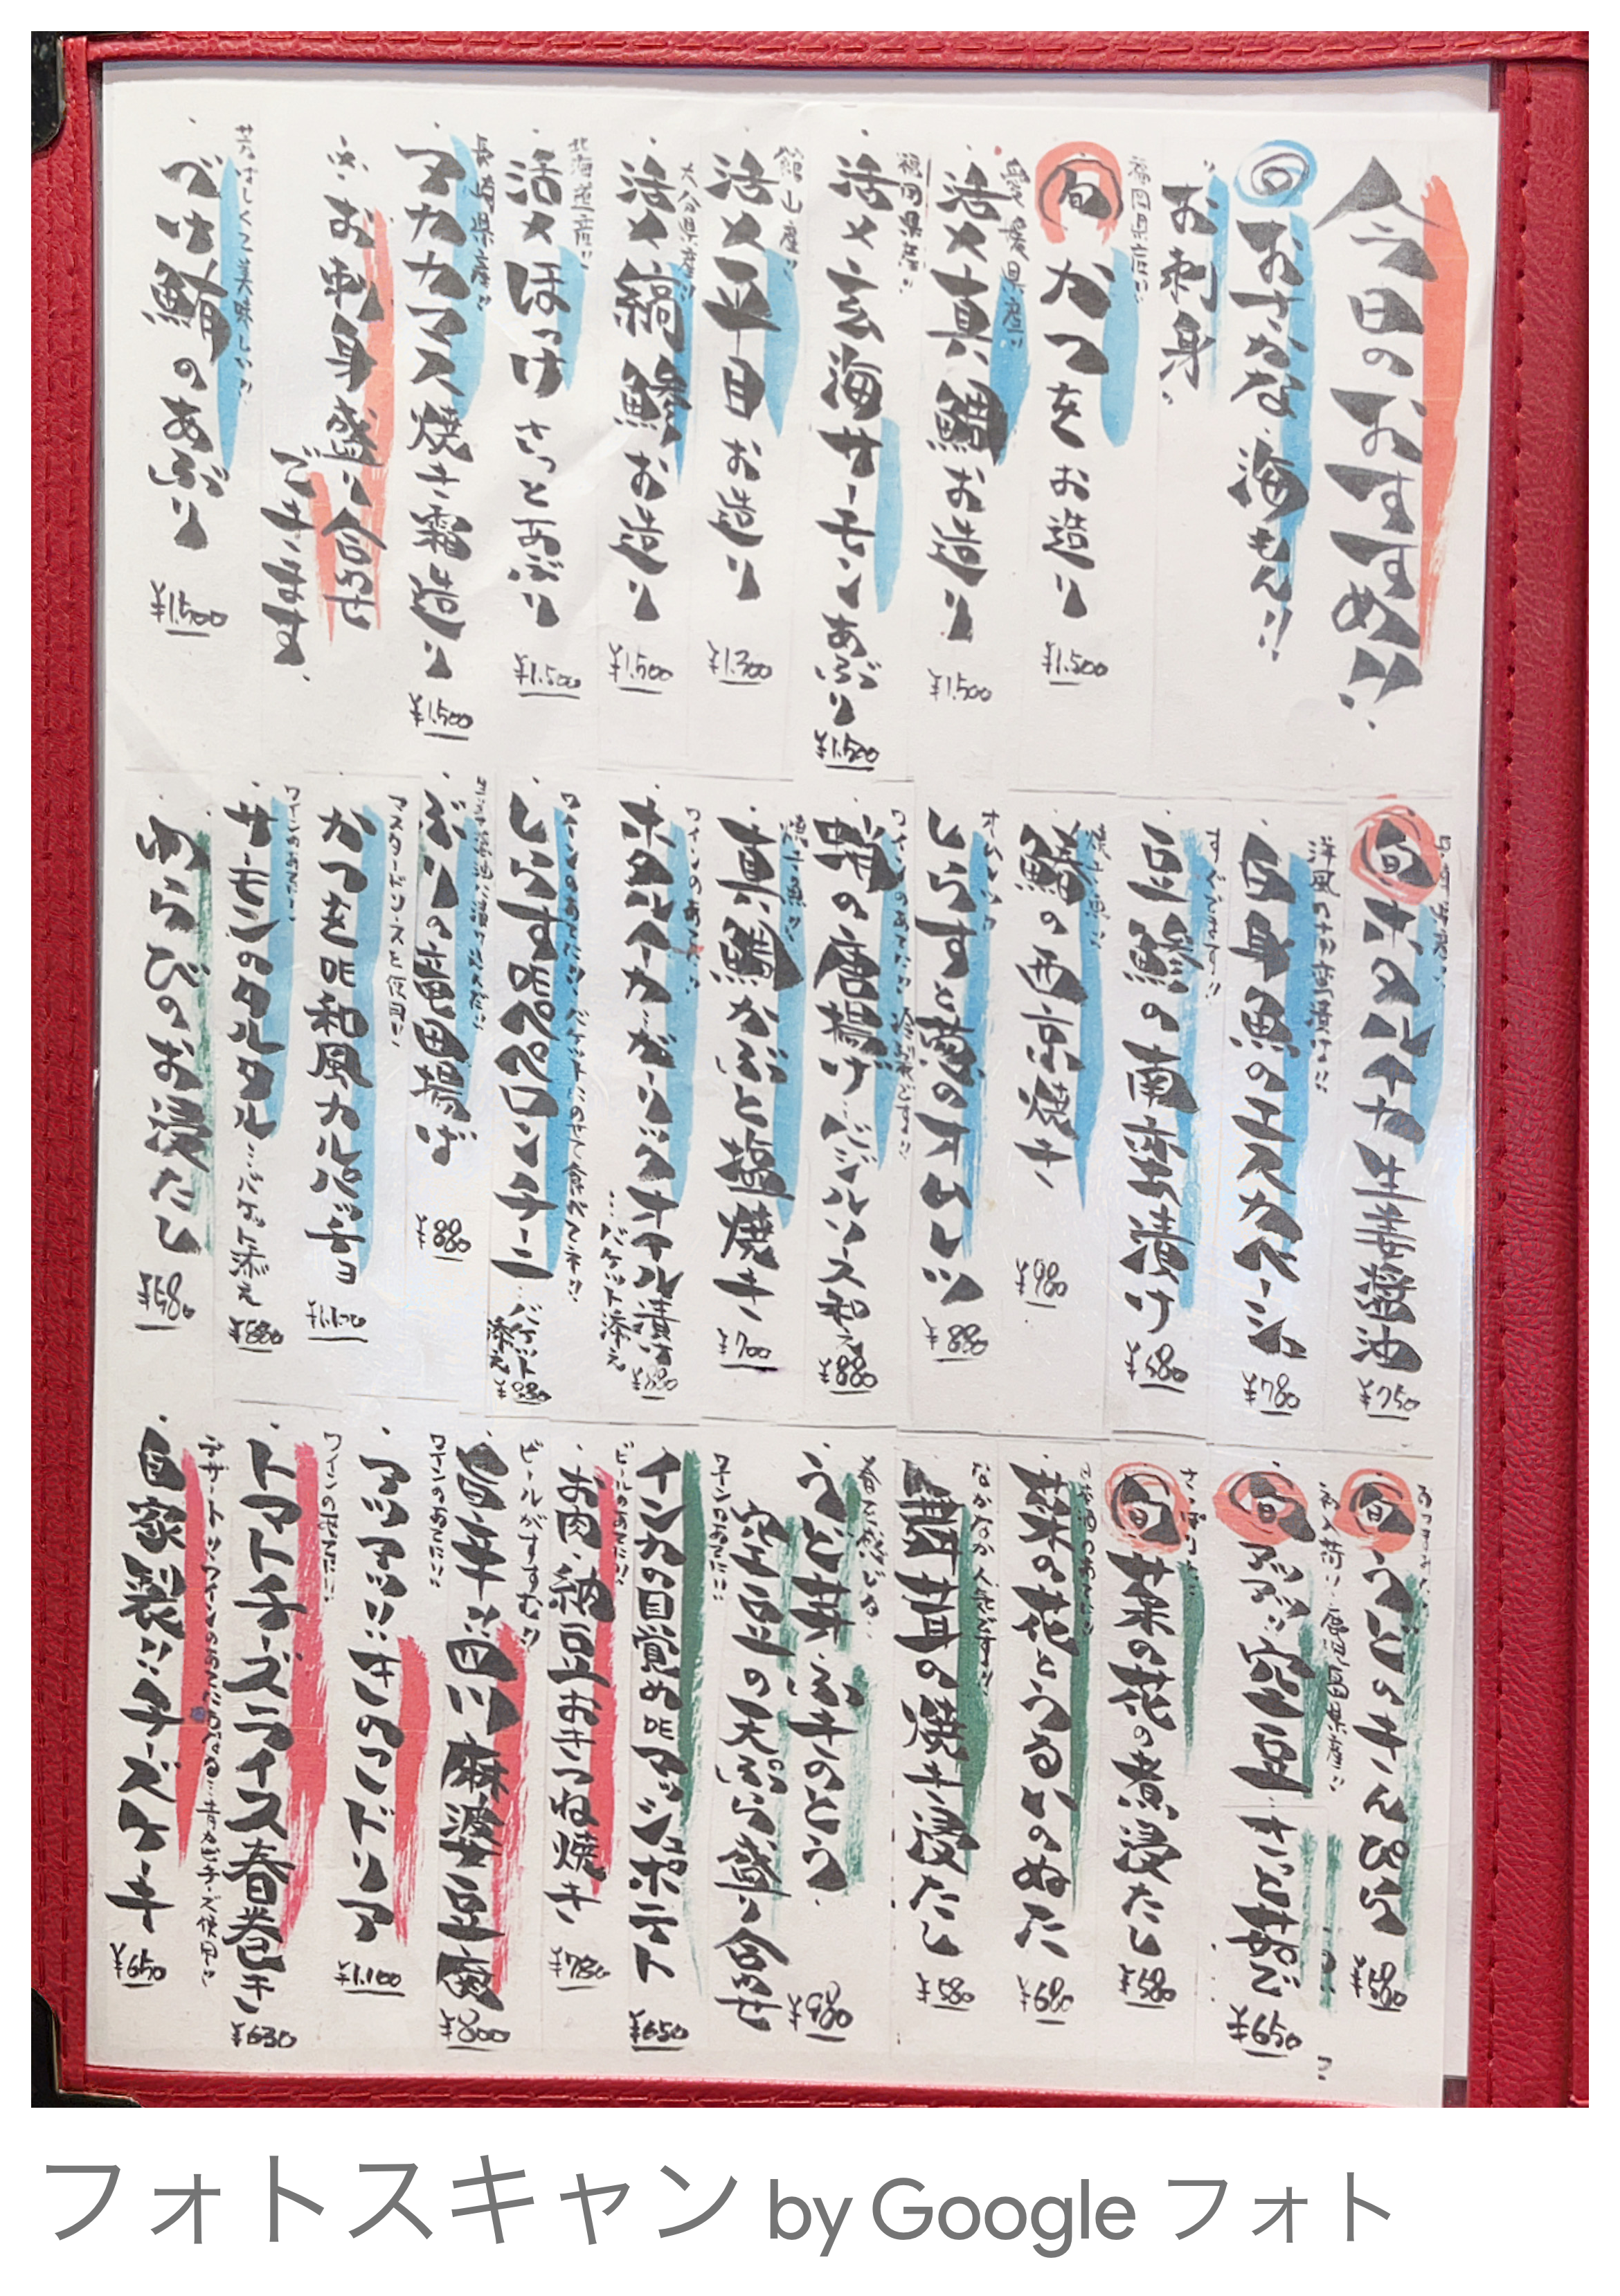 今日のおすすめ!!
旬 おさかな 海もん!!
お刺身
福岡県産!!
旬 かつを お造り ¥1,500
愛媛県産!!
活〆真鯛お造り ¥1,500
福岡県産!!
活〆玄海サーモンあぶり ¥1,500
館山産!!
活〆平目お造り ¥1,300
大分県産!!
活〆縞鯵お造り ¥1,500
北海道産!!
活〆ほっけ さっとあぶり ¥1,500
長崎県産!!
アカカマス焼き霜造り ¥1,500
※お刺身盛り合わせ
できます。
美味しい!!
づけ鮪のあぶり ¥1,500
旬 ホタルイカ生姜醤油 ¥750
洋風の南蛮漬け!!
白身魚のエスカベーシュ ¥780
すぐでます!!
豆鯵の南蛮漬け ¥680
焼き魚!!
鰆の西京焼き ¥980
オムレツ!!
しらすと葱のオムレツ ¥880
蛸の唐揚げバジルソース和え ¥880
焼き魚!!
真鯛かぶと塩焼き ¥700
ワインのあてに!!
ホタルイカガーリックオイル漬け ¥880
…バゲット添え
ワインのあてに!!バゲットにのせて食べてネ!!
しらすDEペペロンチーニ…バゲット添え ¥880
ぶりの竜田揚げ ¥880
マスタードソースを使用!!
かつをDE和風カルパッチョ ¥1,100
ワインのあてに!!
サーモンのタルタル…バゲット添え ¥880
わらびのお浸たし ¥580
旬 うどのきんぴら ¥580
初入荷!!鹿児島県産!!
旬 空豆 さっと茹で ¥650
旬 菜の花の煮浸たし ¥580
菜の花とうるいのぬた ¥680
なかなか人気です!!
舞茸の焼き浸たし ¥580
うど芽、ふきのとう、
空豆の天ぷら盛り合せ ¥980
ワインのあてに!!
インカの目覚めDEアッシュポニット ¥650
ビールのあてに!!
お肉・納豆おきつね焼き ¥780
ビールがすすむ!!
旨辛!!白い麻婆豆腐 ¥800
ワインのあてに!!
アツアツ!!きのこドリア ¥1,100
ワインのあてに!!
トマトチーズライス春巻き ¥630
デザート!!ワインのあてにもなる…青カビチーズ使用!!
自家製!!チーズケーキ ¥650
フォトスキャン by Google フォト